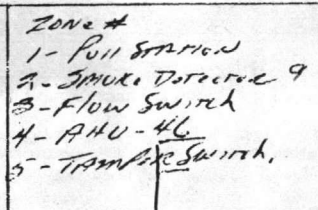 ZONE #
1- PULL STATION
2- SMOKE DETECTOR 9
3- FLOW SWITCH
4- AHU-46
5- TAMPER SWITCH.